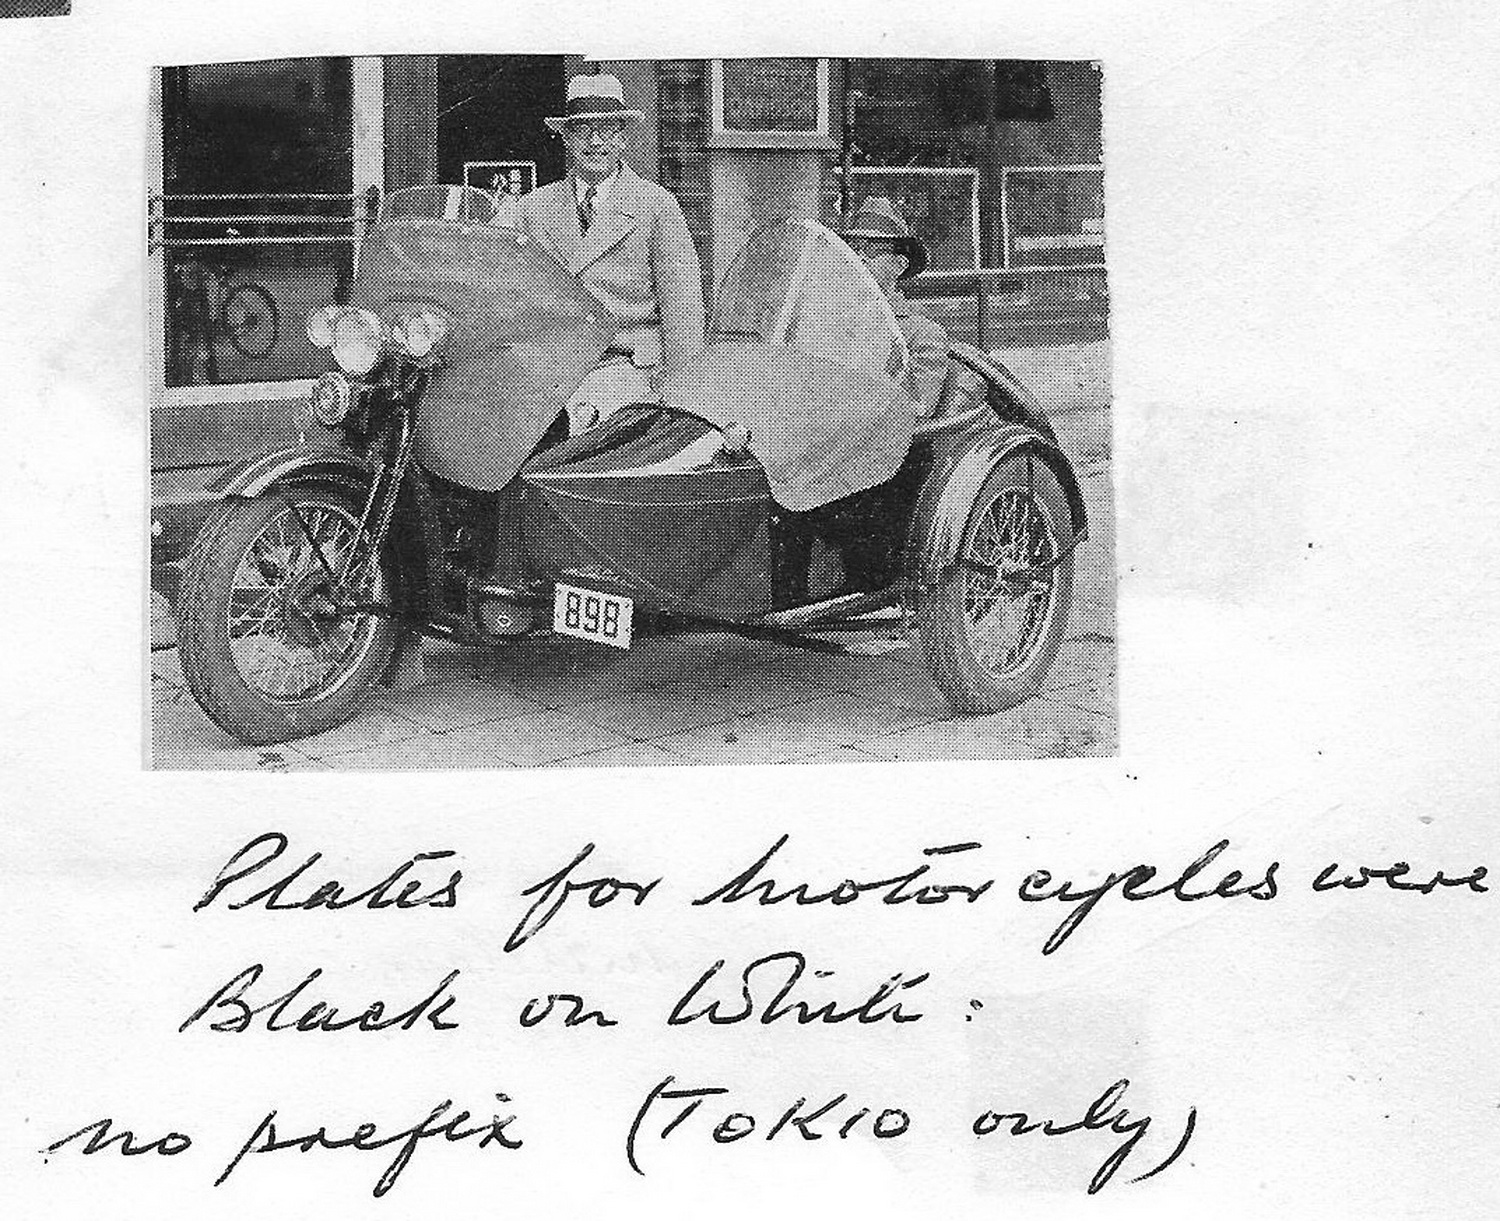 898
Plates for motorcycles were
Black on White:
no prefix (TOKIO only)